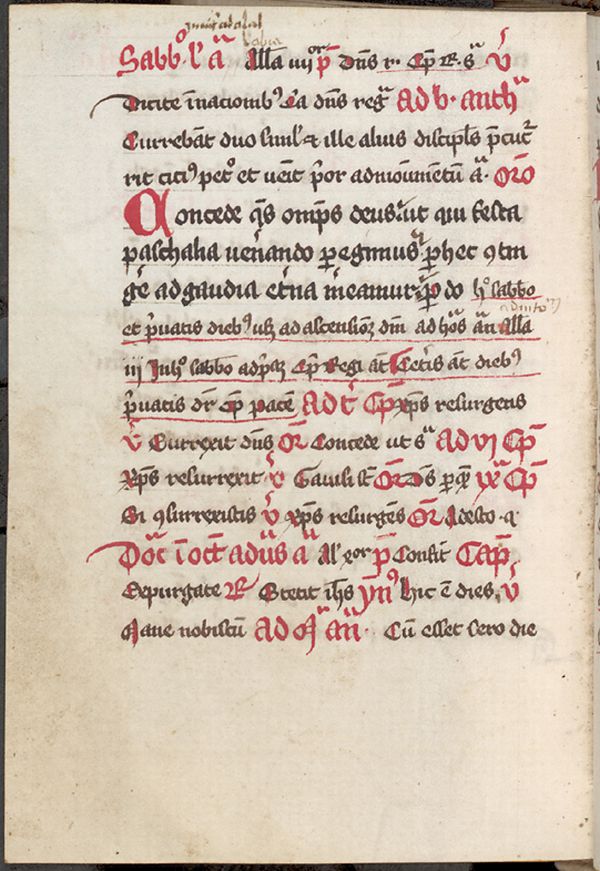 Sabb' l' a Alla iiij or p Dns r. Cp R. s v
Dicite i nacionib' q'a dns reg ad b. anth
Currebat duo simul & ille alius discipls pcucur
rit citi' pet° et venit por ad monumentu a. Oro
Concede qs omps deus ut qui festa
paschalia venando pegimus p hec gtin
ge ad gaudia etna meamur p do h° sabbo
et puatis dieb' usq ad ascensioz dni ad hos an alla
iij In h° sabbo ad pmaz Cp Regi at Cetis at dieb'
puatis dr Cp pace Ad t Cp xps resurgens
v Surrexit dns Or Concede ut s Ad vi Cp
xps resurrexit v Gavisi st Or Ds p q ix Cp
Si gsurrexistis v xps resurgens Or Adesto q
Doca i oct ad us a All' p Confit Cap
Expurgate R Stetit ihs ymn' hic e dies v
Mane nobiscu ad m an. Cu esset sero die